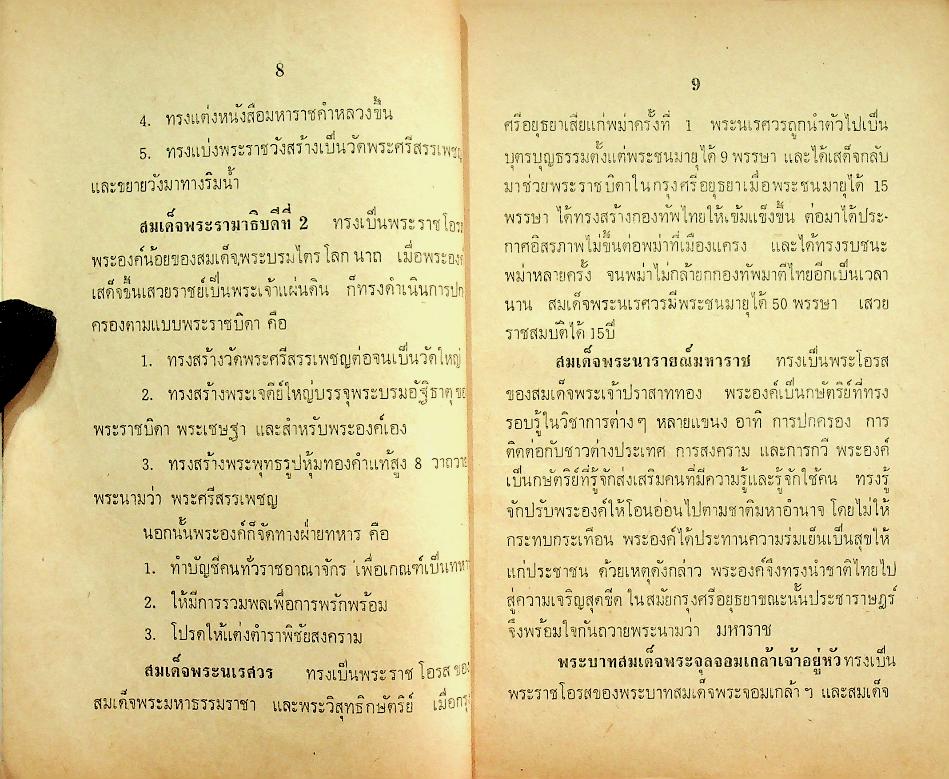 8
4. ทรงแต่งหนังสือมหาราชคำหลวงขึ้น
5. ทรงแบ่งพระราชวังสร้างเป็นวัดพระศรีสรรเพชญ
และขยายวังมาทางริมน้ำ
สมเด็จพระรามาธิบดีที่ 2 ทรงเป็นพระราชโอรส
พระองค์น้อยของสมเด็จพระบรมไตรโลกนาถ เมื่อพระองค์
เสด็จขึ้นเสวยราชย์เป็นพระเจ้าแผ่นดิน ก็ทรงดำเนินการปก
ครองตามแบบพระราชบิดา คือ
1. ทรงสร้างวัดพระศรีสรรเพชญต่อจนเป็นวัดใหญ่
2. ทรงสร้างพระเจดีย์ใหญ่บรรจุพระบรมอัฐิธาตุของ
พระราชบิดา พระเชษฐา และสำหรับพระองค์เอง
3. ทรงสร้างพระพุทธรูปหุ้มทองคำแท้สูง 8 วาถวาย
พระนามว่า พระศรีสรรเพชญ
นอกนั้นพระองค์ก็จัดทางฝ่ายทหาร คือ
1. ทำบัญชีคนทั่วราชอาณาจักร เพื่อเกณฑ์เป็นทหาร
2. ให้มีการรวมพลเพื่อการพรักพร้อม
3. โปรดให้แต่งตำราพิชัยสงคราม
สมเด็จพระนเรศวร ทรงเป็นพระราชโอรสของ
สมเด็จพระมหาธรรมราชา และพระวิสุทธิกษัตริย์ เมื่อกรุง
9
ศรีอยุธยาเสียแก่พม่าครั้งที่ 1 พระนเรศวรถูกนำตัวไปเป็น
บุตรบุญธรรมตั้งแต่พระชนมายุได้ 9 พรรษา และได้เสด็จกลับ
มาช่วยพระราชบิดาในกรุงศรีอยุธยาเมื่อพระชนมายุได้ 15
พรรษา ได้ทรงสร้างกองทัพไทยให้เข้มแข็งขึ้น ต่อมาได้ประ-
กาศอิสรภาพไม่ขึ้นต่อพม่าที่เมืองแครง และได้ทรงรบชนะ
พม่าหลายครั้ง จนพม่าไม่กล้ายกกองทัพมาตีไทยอีกเป็นเวลา
นาน สมเด็จพระนเรศวรมีพระชนมายุได้ 50 พรรษา เสวย
ราชสมบัติได้ 15ปี
สมเด็จพระนารายณ์มหาราช ทรงเป็นพระโอรส
ของสมเด็จพระเจ้าปราสาททอง พระองค์เป็นกษัตริย์ที่ทรง
รอบรู้ในวิชาการต่างๆ หลายแขนง อาทิ การปกครอง การ
ติดต่อกับชาวต่างประเทศ การสงคราม และการกวี พระองค์
เป็นกษัตริย์ที่รู้จักส่งเสริมคนที่มีความรู้และรู้จักใช้คน ทรงรู้
จักปรับพระองค์ให้โอนอ่อนไปตามชาติมหาอำนาจ โดยไม่ให้
กระทบกระเทือน พระองค์ได้ประทานความร่มเย็นเป็นสุขให้
แก่ประชาชน ด้วยเหตุดังกล่าว พระองค์จึงทรงนำชาติไทยไป
สู่ความเจริญสุดขีด ในสมัยกรุงศรีอยุธยาขณะนั้นประชาราษฎร์
จึงพร้อมใจกันถวายพระนามว่า มหาราช
พระบาทสมเด็จพระจุลจอมเกล้าเจ้าอยู่หัว ทรงเป็น
พระราชโอรสของพระบาทสมเด็จพระจอมเกล้าฯ และสมเด็จ